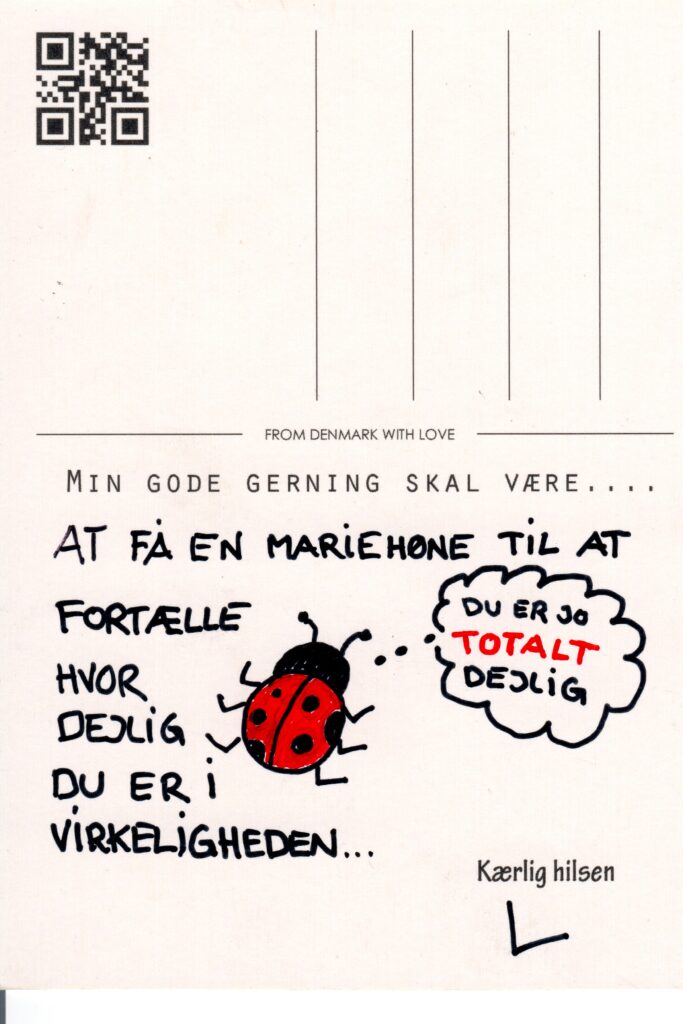 FROM DENMARK WITH LOVE
MIN GODE GERNING SKAL VÆRE....
AT FÅ EN MARIEHØNE TIL AT
FORTÆLLE
HVOR
DEJLIG
DU ER I
VIRKELIGHEDEN...
DU ER JO
TOTALT
DEJLIG
Kærlig hilsen
L